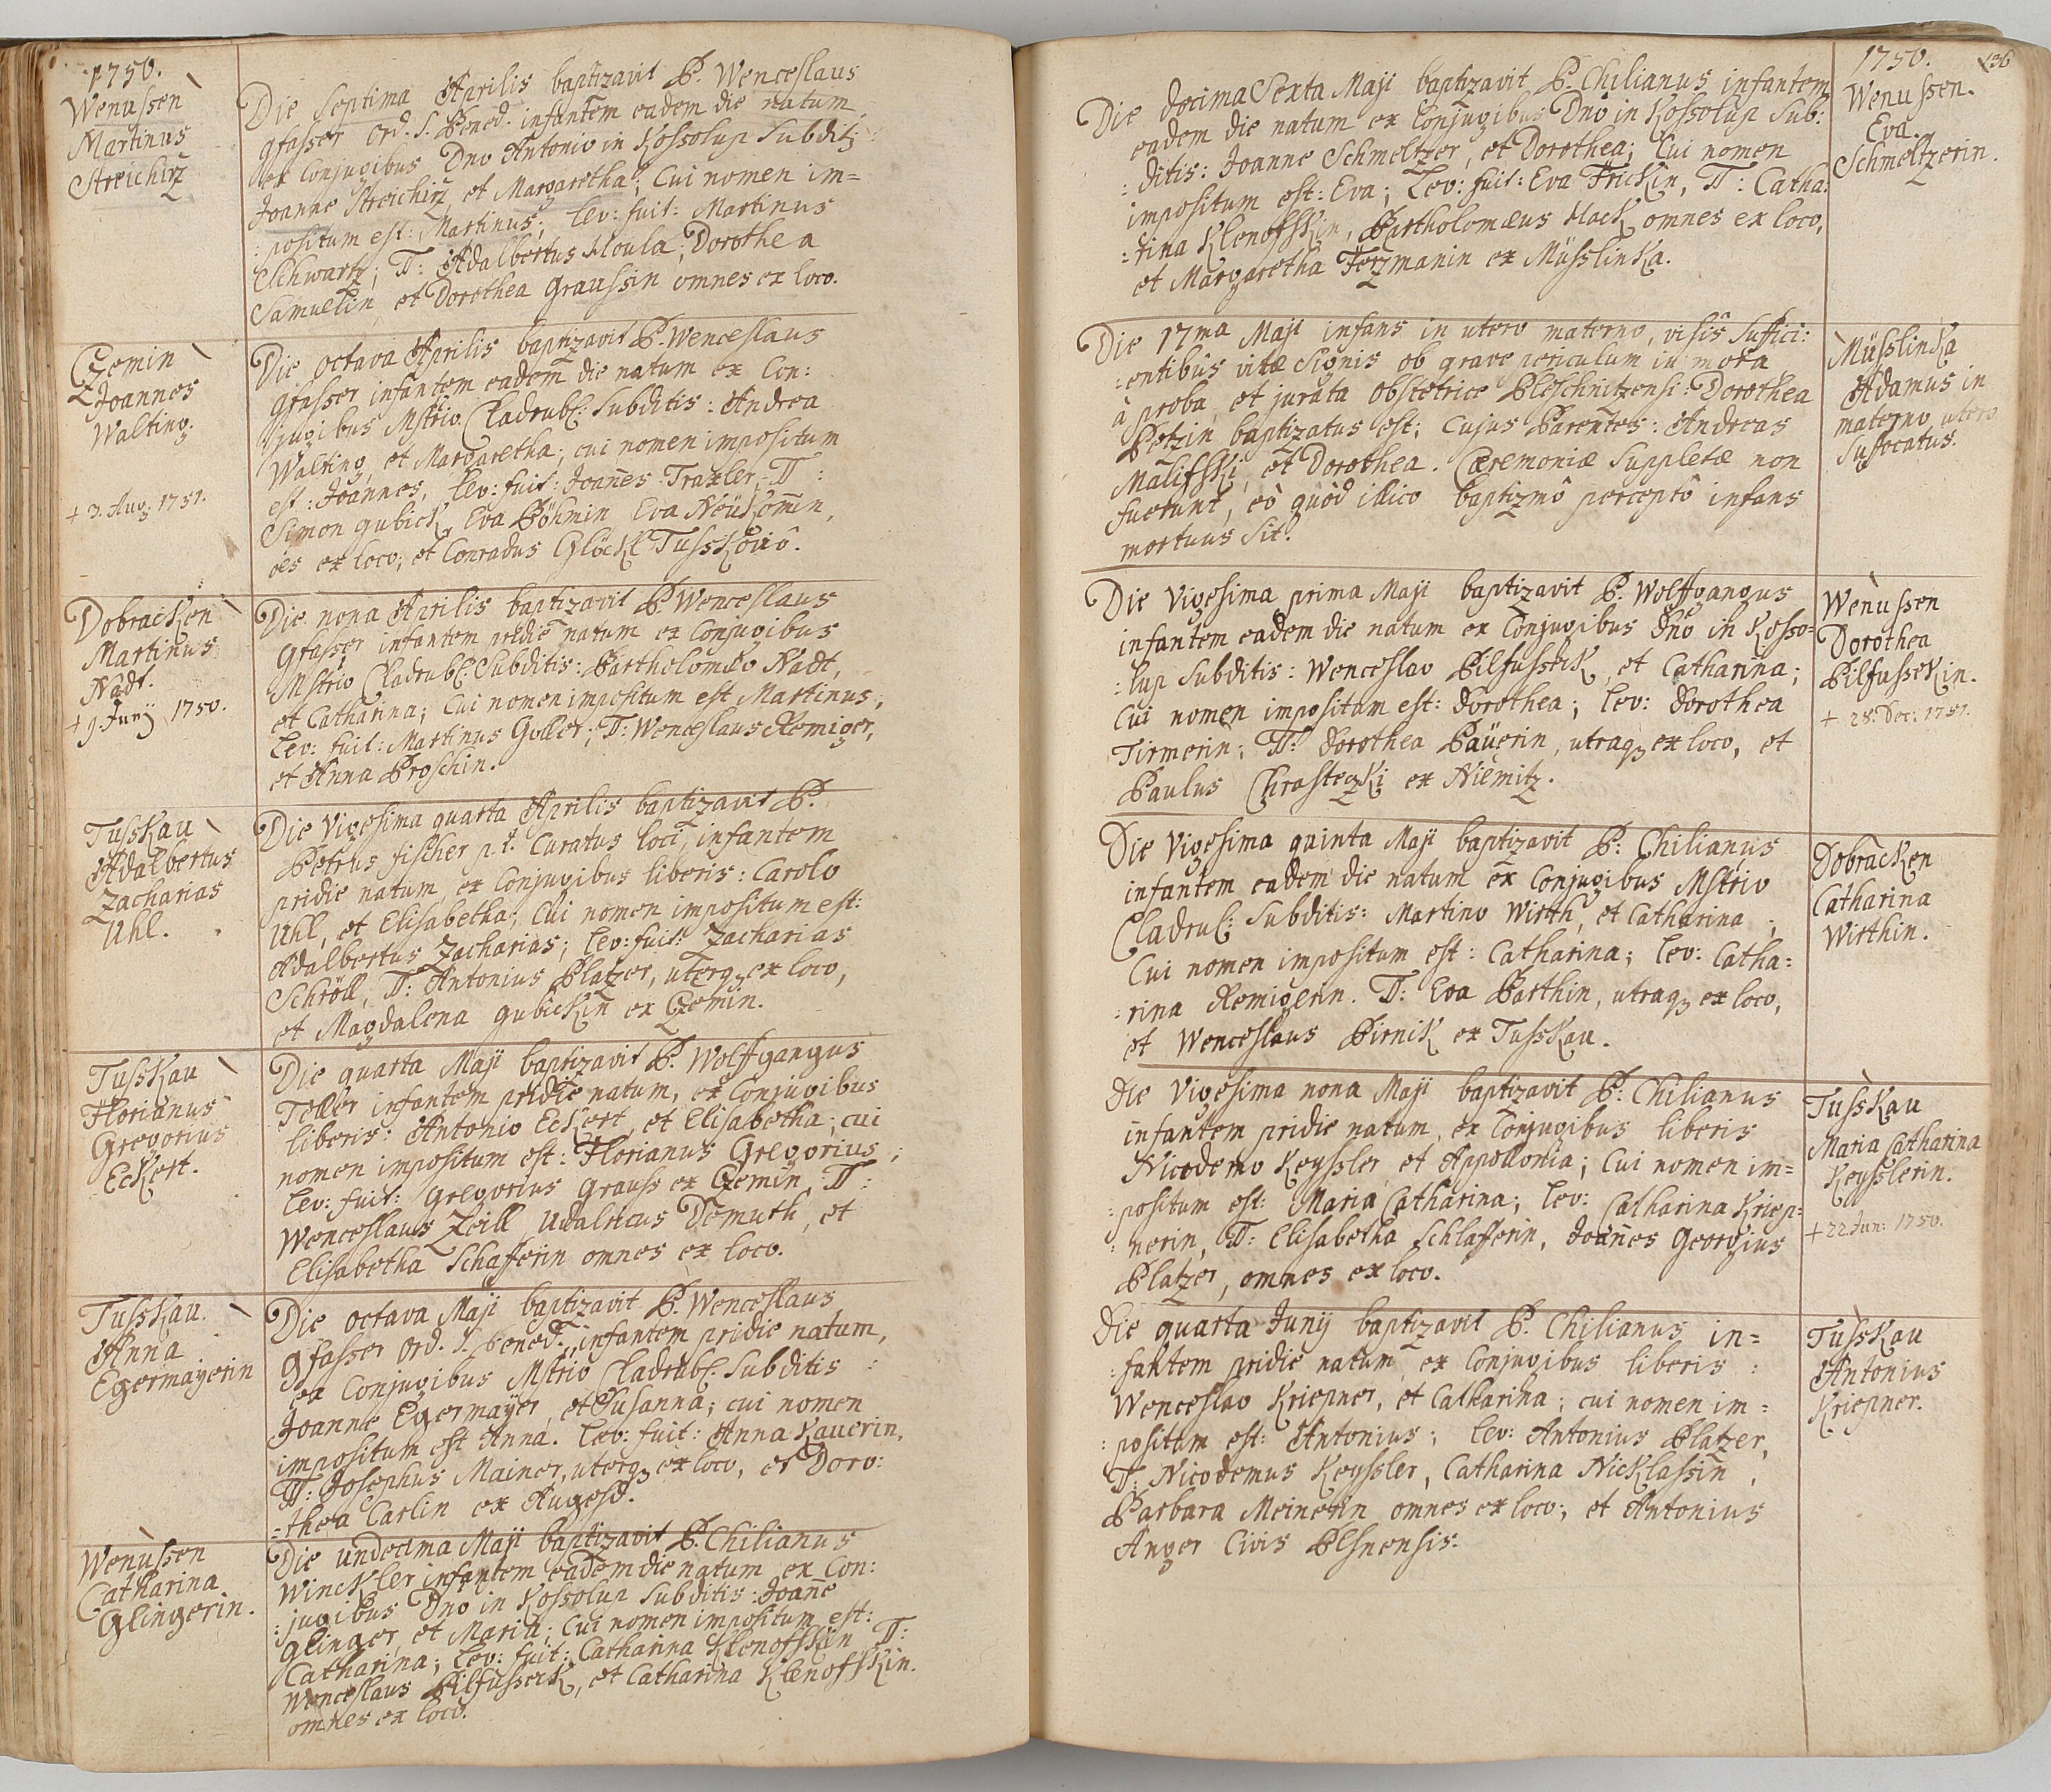 1750.
Wenussen
Martinus
Streichirz
Die septima Aprilis baptizavit P. Wenceslaus
Gfasser Ord. S. Bened. infantem eadem die natum
ex Conjugibus Dno Antonio in Kossolup Subditis
Joanne Streichirz, et Margaretha; Cui nomen im=
:positum est: Martinus; Lev: fuit: Martinus
Schwartz; TT: Adalbertus Houla; Dorothea
Samuelin et Dorothea Graussin omnes ex loco.
Czemin
Joannes
Walting.
+ 3. Aug: 1751.
Die octava Aprilis baptizavit P. Wenceslaus
Gfasser infantem eadem die natum ex Con:
:jugibus Mstrio Cladrub: Subditis: Andrea
Walting, et Margaretha; cui nomen impositum
est: Joannes, Lev: fuit: Joannes Traxler, TT:
Simon Gubick, Eva Böhmin Eva Neükomin,
oes ex loco; et Conradus Glöckl Tusskoviô.
Dobracken
Martinus
Nadt.
+ 9. Junij 1750.
Die nona Aprilis baptizavit P. Wenceslaus
Gfasser infantem pridie natum ex Conjugibus
Mstrio Cladrub: Subditis: Bartholomaeo Nadt,
et Catharina; Cui nomen impositum est Martinus;
Lev: fuit: Martinus Goller; TT: Wenceslaus Remiger,
et Anna Proschin.
Tusskau
Adalbertus
Zacharias
Uhl.
Die Vigesima quarta Aprilis baptizavit P.
Petrus Fischer p.t. Curatus loci, infantem
pridie natum, ex Conjugibus liberis: Carolo
Uhl, et Elisabetha; Cui nomen impositum est:
Adalbertus Zacharias; Lev: fuit: Zacharias
Schröll, TT: Antonius Platzer, uterq3 ex loco,
et Magdalena Gubickin ex Czemin.
Tusskau
Florianus
Gregorius
Eckert.
Die quarta Maji baptizavit P. Wolffgangus
Teller infantem pridie natum, ex Conjugibus
liberis: Antonio Eckert, et Elisabetha; cui
nomen impositum est: Florianus Gregorius;
Lev: fuit: Gregorius Grauss ex Czemin, TT:
Wenceslaus Zeill Udalricus Demuth, et
Elisabetha Schafferin omnes ex loco.
Tusskau.
Anna
Egermayerin
Die octava Maji baptizavit P. Wenceslaus
Gfasser Ord. S. Bened: infantem pridie natum,
ex Conjugibus Mstrio Cladrub: Subditis:
Joanne Egermayer, et Susanna; cui nomen
impositum est Anna. Lev: fuit: Anna Kauerin,
TT: Josephus Mainer, uterq3 ex loco, et Doro:
:thea Carlin ex Augesd.
Wenussen
Catharina
Glingerin.
Die undecima Maji baptizavit P. Chilianus
Winckler infantem eadem die natum ex Con:
:jugibus Dno in Kossolup Subditis: Joanne
Glinger, et Maria; Cui nomen impositum est:
Catharina; Lev: fuit: Catharina Klenofskin TT:
Wenceslaus Pilfusseck, et Catharina Klenofskin.
omnes ex loco.
1750. 136
Wenussen.
Eva
Schmeltzerin.
Die decima Sexta Maji baptizavit P. Chilianus infantem
eadem die natum ex Conjugibus Dno in Kossolup Sub:
:ditis: Joanne Schmeltzer, et Dorothea; Cui nomen
impositum est: Eva; Lev: fuit: Eva Frickin, TT: Catha:
:rina Klenofskin, Bartholomæus Hack omnes ex loco,
et Margaretha Förzmanin ex Müsslinka.
Müsslinka
Adamus in
materno utero
Suffocatus.
Die 17ma Maji infans in utero materno, visis Suffici:
:entibus vitæ Signis ob grave periculum in mora
à proba, et jurata Obstetrice Pleschnitzensi: Dorothea
Petzin baptizatus est; Cujus Parentes: Andreas
Malifski, et Dorothea. Cæremoniæ Suppletæ non
fuerunt, eò quòd illico baptizmô perceptô infans
mortuus sit.
Wenussen
Dorothea
Pilfussekin.
+ 28. Dec: 1751.
Die Vigesima prima Maji baptizavit P. Wolffgangus
infantem eadem die natum ex Conjugibus Dno in Kosso=
:lup Subditis: Wenceslao Pilfusseck, et Catharina;
Cui nomen impositum est: Dorothea; Lev: Dorothea
Tirmerin; TT: Dorothea Päuerin, utraq3 ex loco, et
Paulus Chrasteczki ex Niemitz.
Dobracken
Catharina
Wirthin.
Die Vigesima quinta Maji baptizavit P. Chilianus
infantem eadem die natum ex Conjugibus Mstrio
Cladrub: Subditis: Martino Wirth, et Catharina;
Cui nomen impositum est: Catharina; Lev: Catha:
:rina Remigerin. TT: Eva Barthin, utraq3 ex loco,
et Wenceslaus Pirnik ex Tusskau.
Tusskau
Maria Catharina
Keysslerin.
+ 22 Jun: 1750.
Die Vigesima nona Maji baptizavit P. Chilianus
infantem pridie natum, ex Conjugibus liberis
Nicodemo Keyssler, et Appollonia; Cui nomen im=
:positum est: Maria Catharina; Lev: Catharina Kriep=
:nerin, TT: Elisabetha Schlafferin, Joannes Georgius
Platzer, omnes ex loco.
Tusskau
Antonius
Kriepner.
Die quarta Junij baptizavit P. Chilianus in=
:fantem pridie natum, ex Conjugibus liberis:
Wenceslao Kriepner, et Catharina; cui nomen im=
:positum est: Antonius; Lev: Antonius Platzer,
TT: Nicodemus Keyssler, Catharina Nicklassin,
Barbara Meinerin omnes ex loco; et Antonius
Anger Civis Plsnensis.